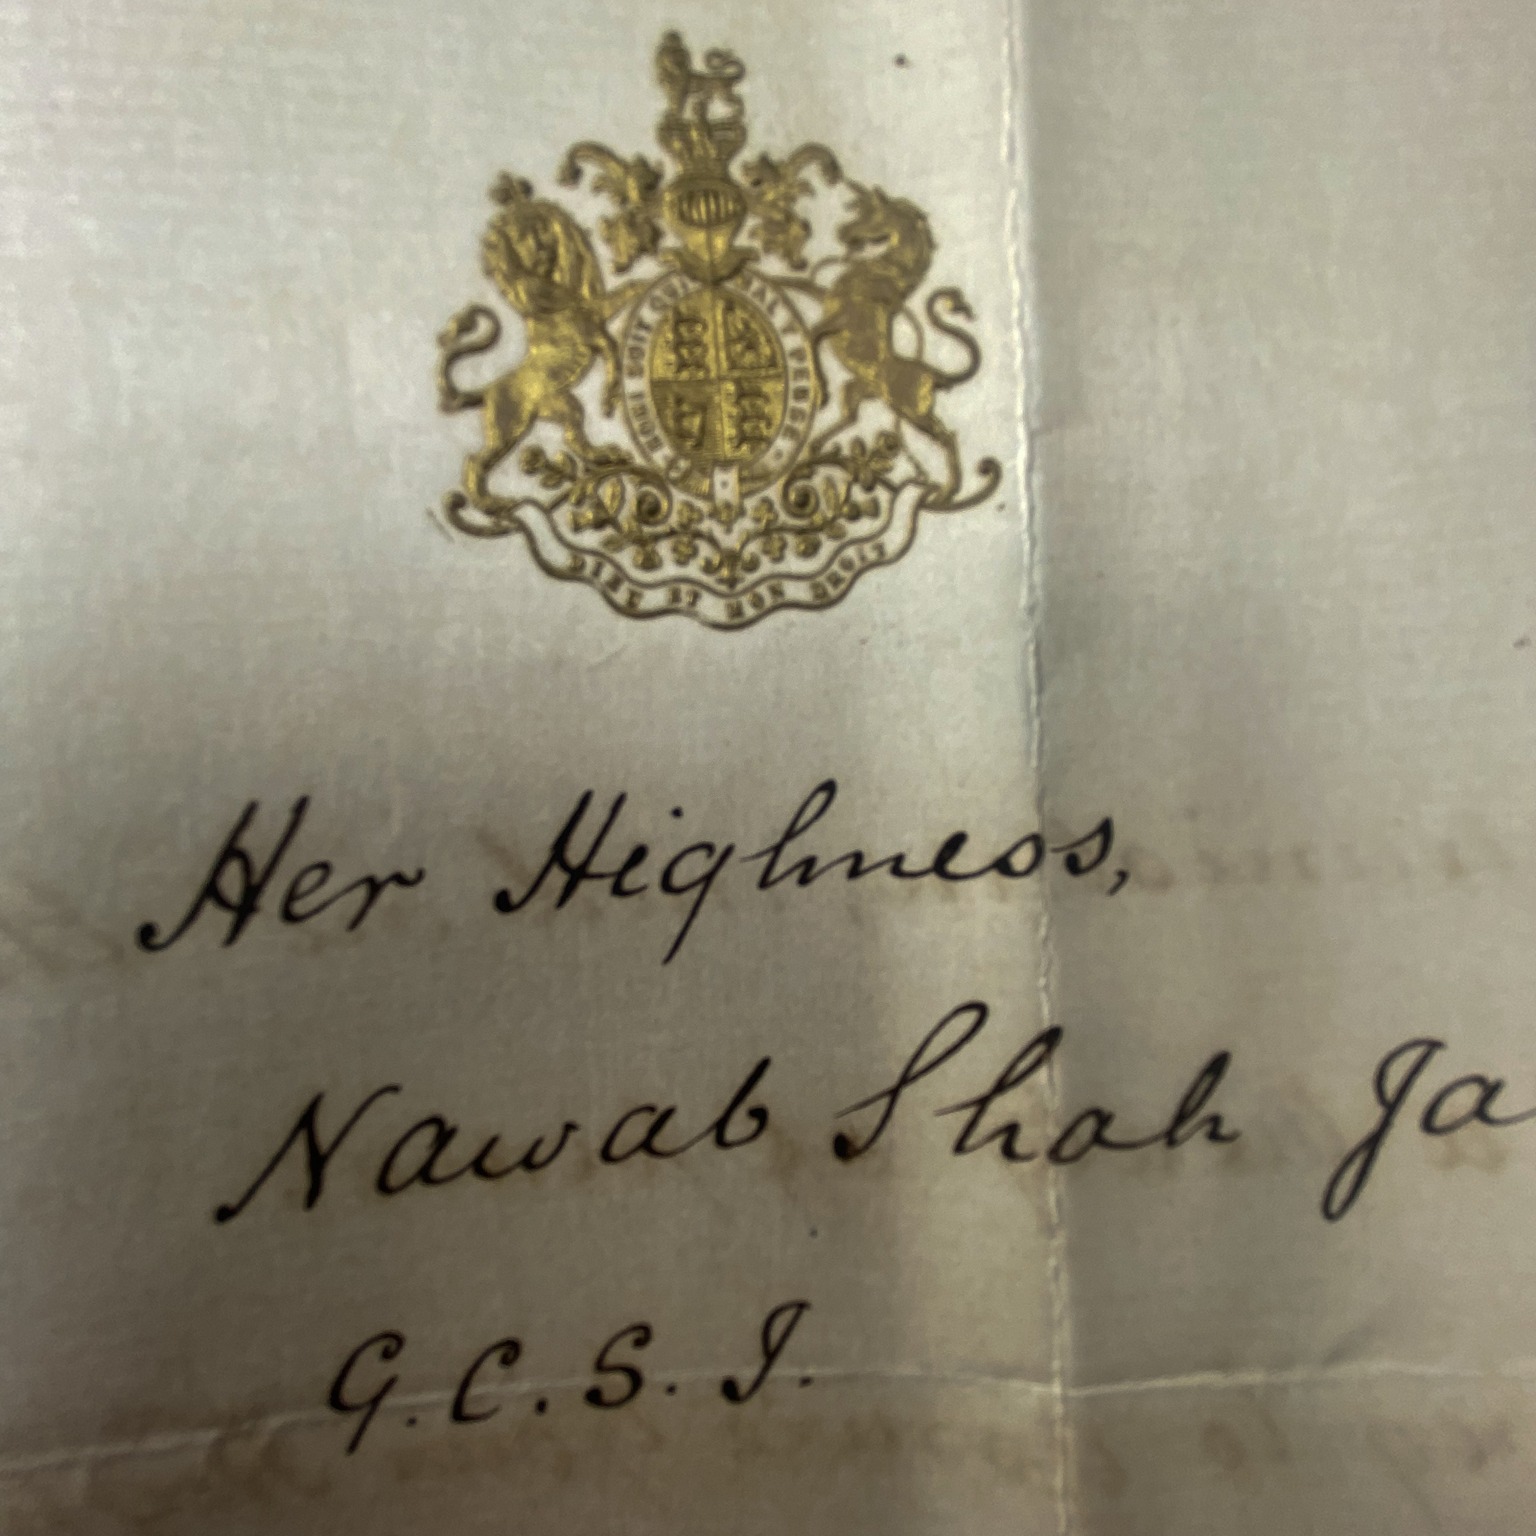 HONI SOIT QUI MAL Y PENSE
DIEU ET MON DROIT
Her Highness,
Nawab Shah Ja
G.C.S.I.